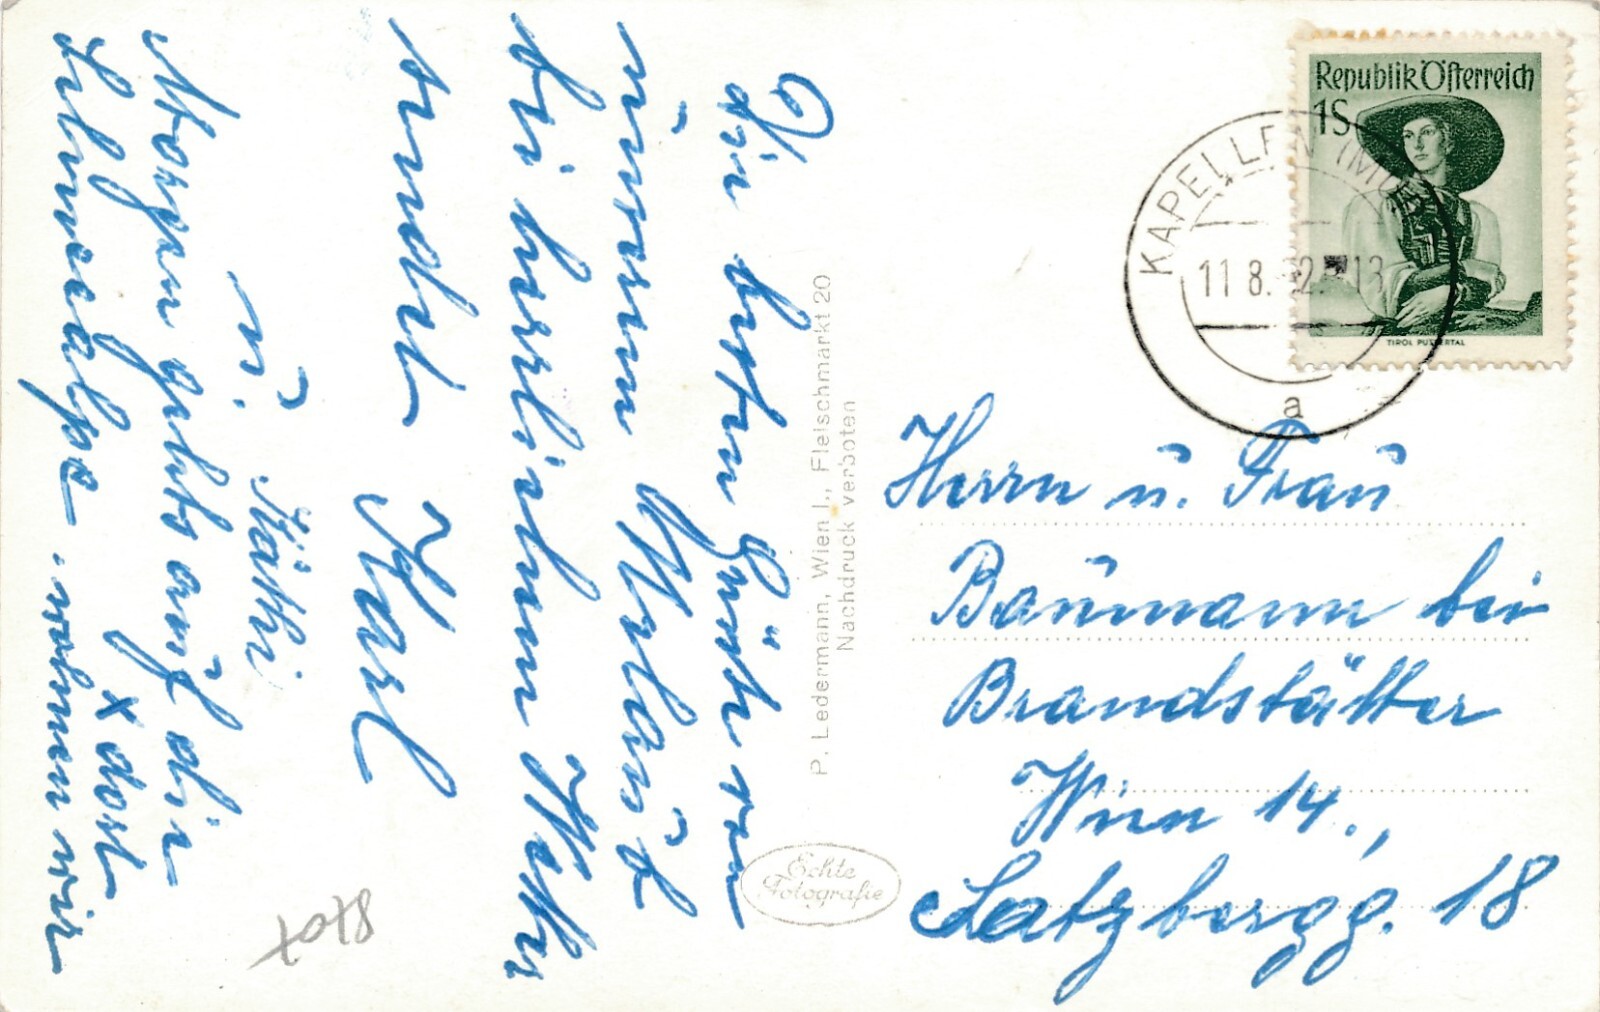 Die besten Grüße von
unserem Urlaub
bei herrlichem Wetter
sendet Karl
u. Käthi
Morgen gehts auf die
x dort
Schneealpe. wohnen wir
P. Ledermann, Wien I., Fleischmarkt 20
Nachdruck verboten
Echte
Fotografie
Republik Österreich
1S
TIROL PUSTERTAL
KAPELLEN
11 8. 52 13
a
Herrn u. Frau
Baumann bei
Brandstätter
Wien 14.,
Satzbergg. 18